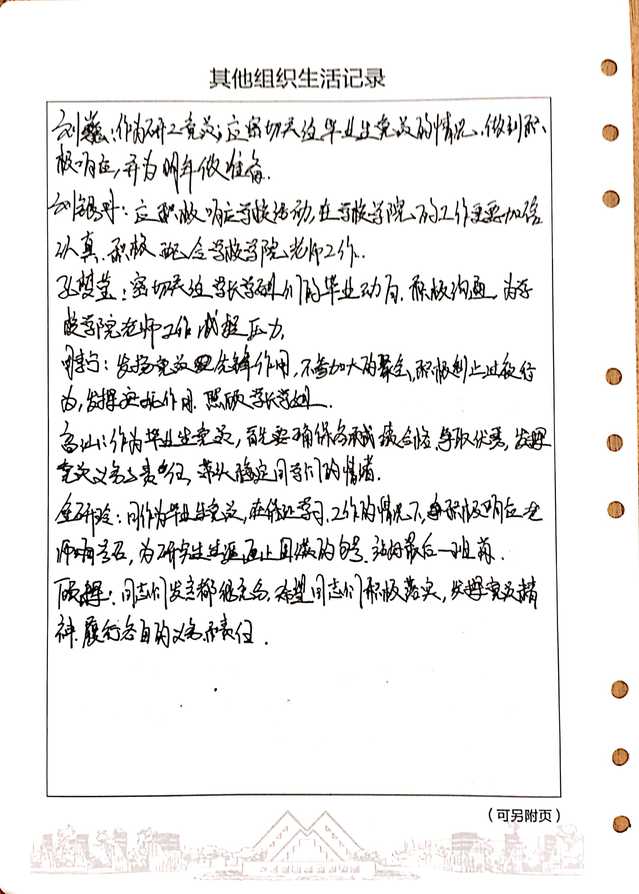 其他组织生活记录
刘巍：作为研二党员，应密切关注毕业生党员的情况，做到积
极响应，并为明年做准备。
刘锡：应积极响应学校活动，在学校学院的工作更要加倍
认真，积极配合学校学院老师工作。
孔梦莹：密切关注学长学姐们的毕业动向，积极沟通，为学
校学院老师工作减轻压力。
宁：发扬党员先锋作用，不参加大的聚会，积极制止过激行
为，发挥作用，照顾学长学姐。
高汕：作为毕业生党员，首先要确保各成绩合格，争取优秀，发挥
党员义务与责任，带头稳定同学们的情绪。
：同作为毕业生党员，在保证学习、工作的情况下，争积极响应老
师号召，为研究生生涯画上圆满的句号，站好最后一班岗。
顾辉：同志们发言都很充分，希望同志们积极落实，发挥党员精
神，履行各自的义务和责任。
（可另附页）